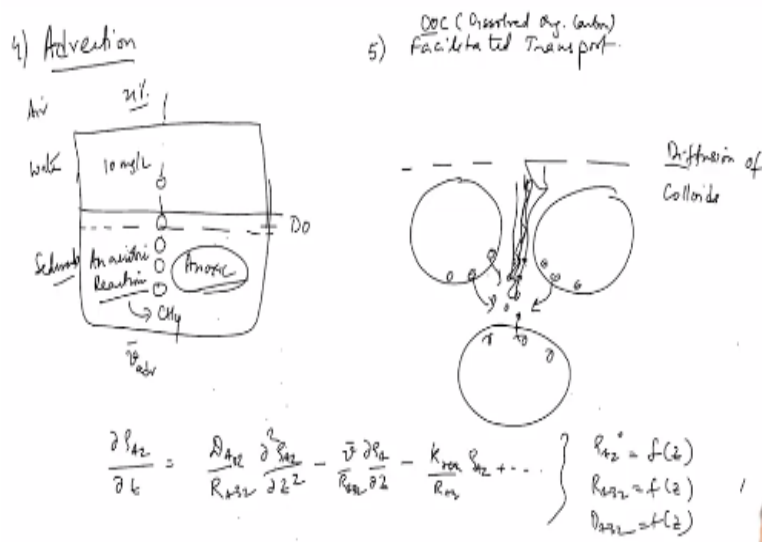 4) Advection
Air
21%
Water
10 mg/L
DO
Sediments
Anaerobic
Reaction
Anoxic
→ CH4
v̄adv
5) DOC (Dissolved Org. Carbon)
Facilitated Transport.
Diffusion of
Colloids
∂ρA2/∂t = DA32/RA32 ∂²ρA2/∂z² - v̄/RA32 ∂ρA/∂z - krxn ρA2 + ....
ρA2° = f(z)
RA32 = f(z)
DA32 = f(z)